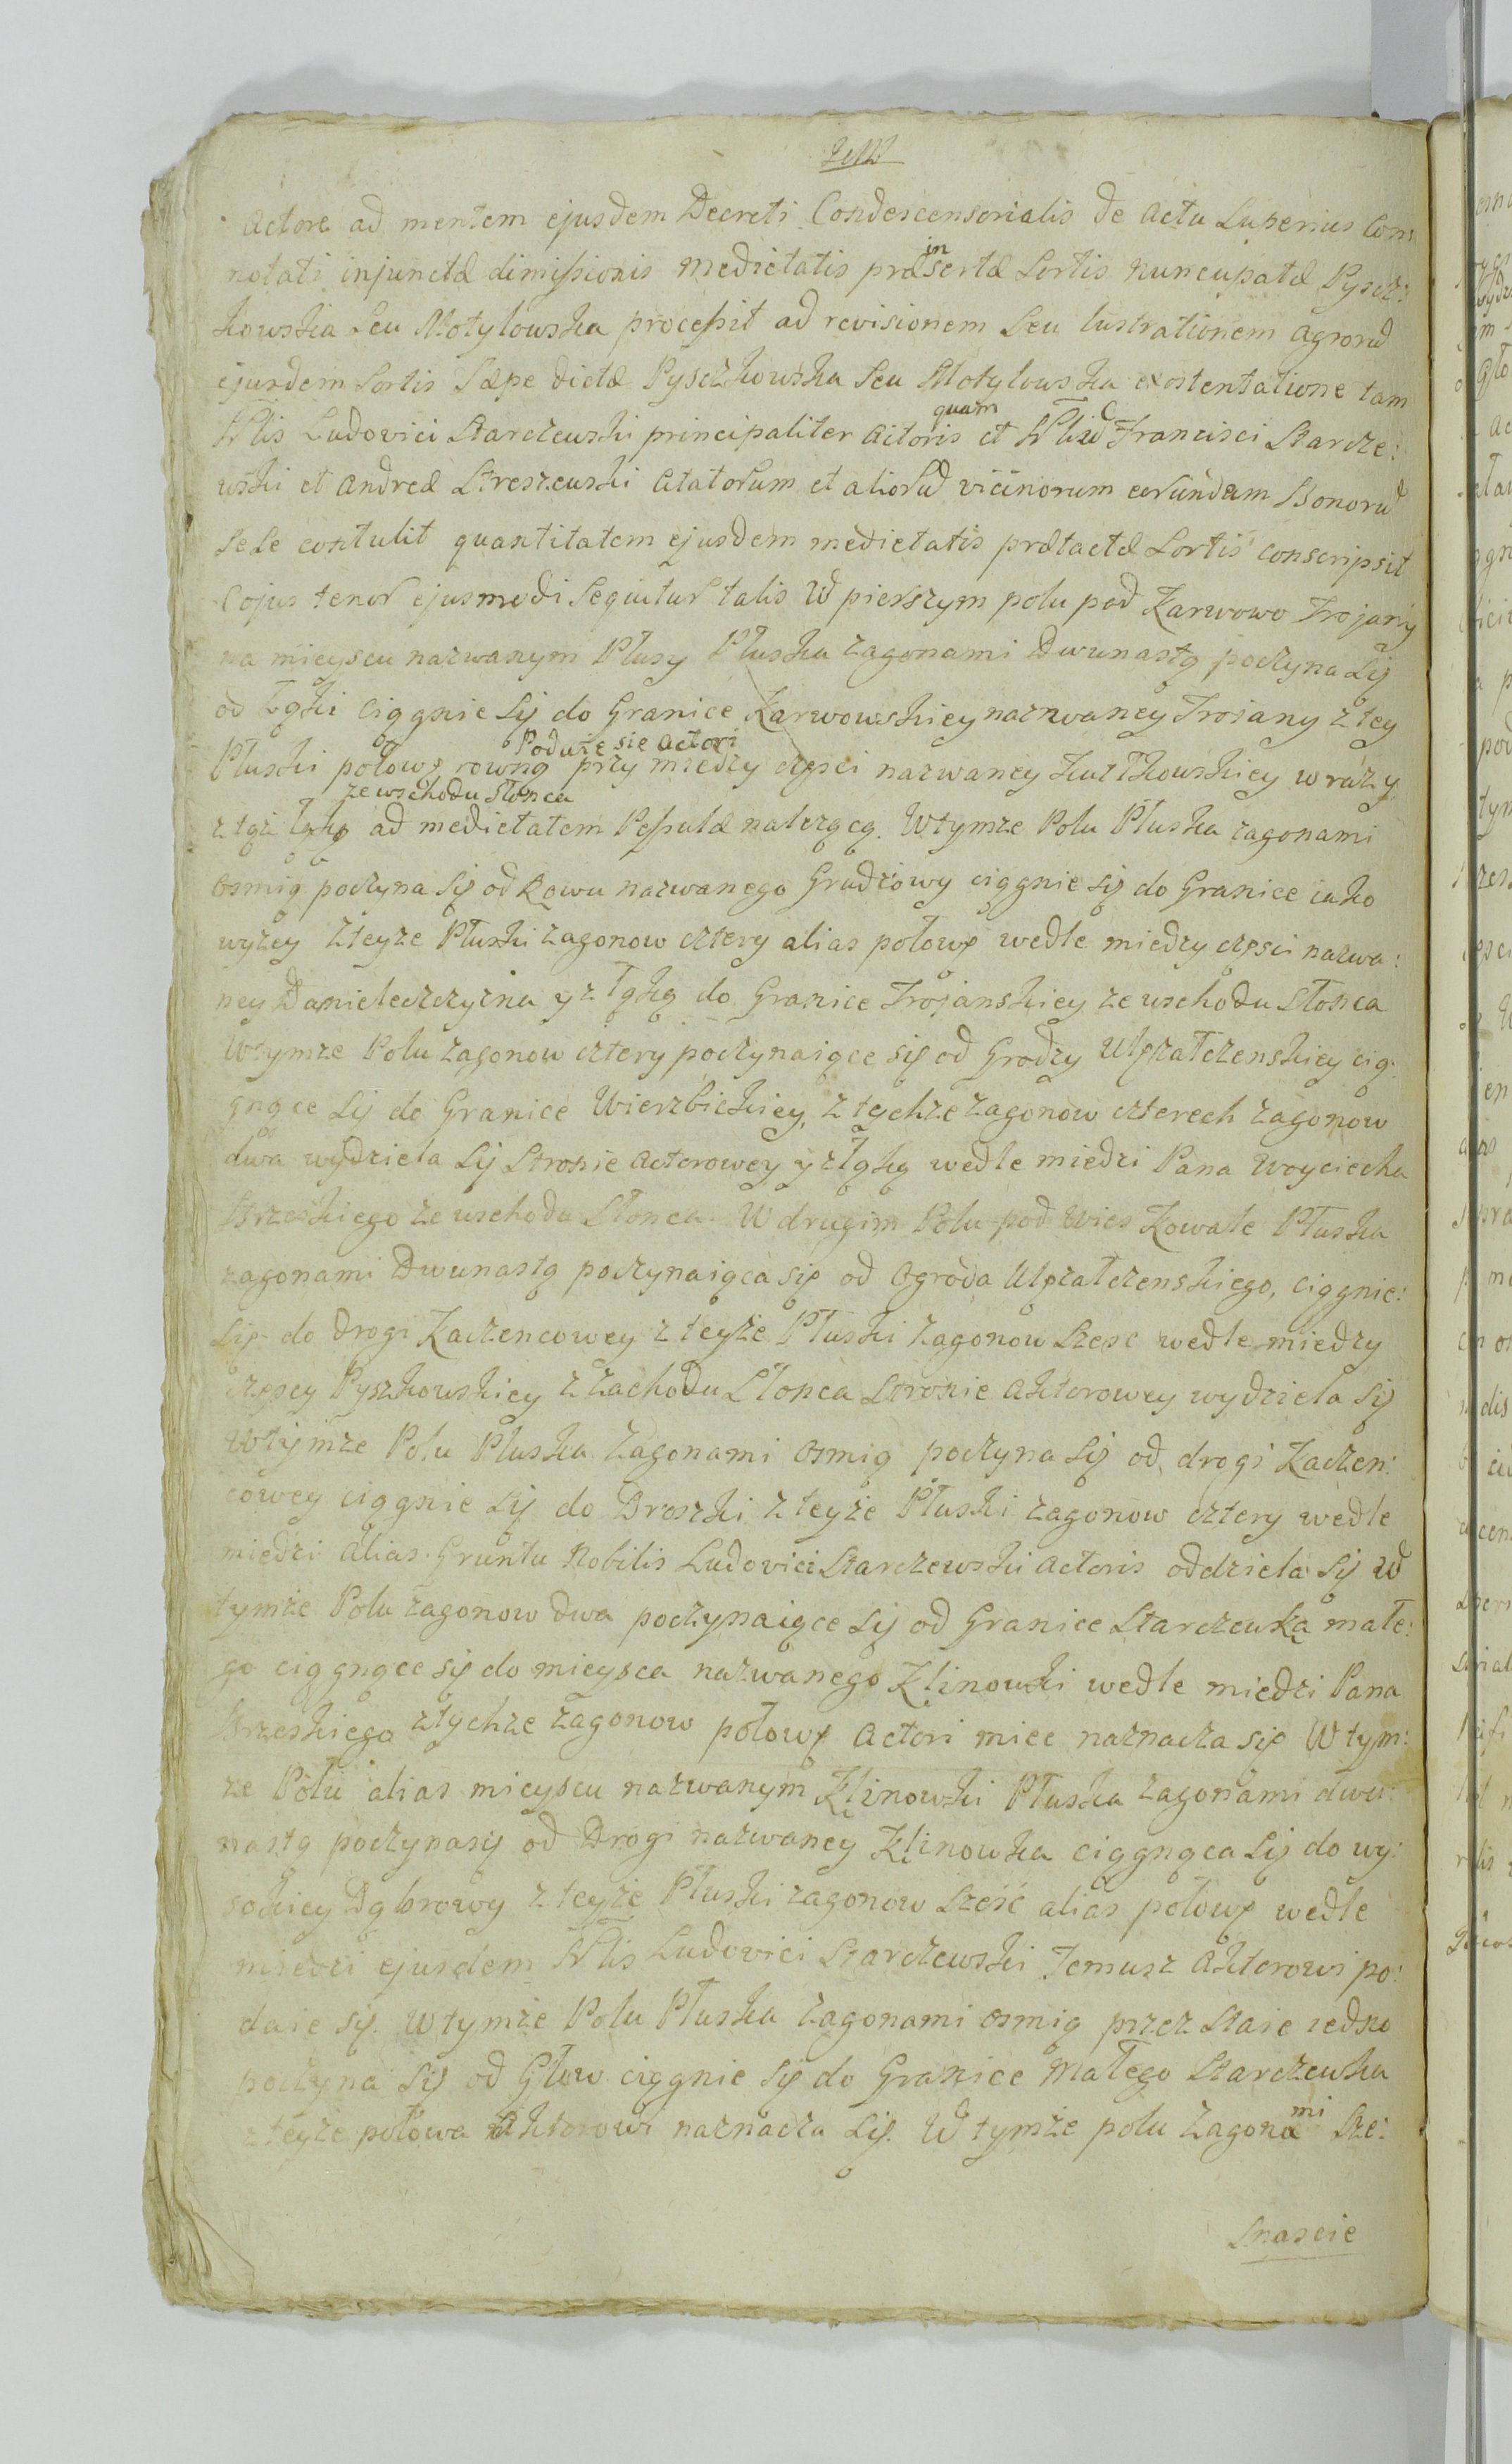 Actore ad mentem ejusdem Decreti Condescensorialis de actu Superius Con:
notati injunctæ dimissionis medietatis præinsertæ Sortis nuncupatæ Pyscz:
kowska Seu Motylowska processit ad revisionem Seu lustrationem agrorũ
ejusdem Sortis Sæpe dictæ Pysczkowska Seu Motylowska ex ostentatione tam
Nlis Ludovici Starczewski principaliter Actoris quam et Francisci Starcze:
wski et Andreæ Streszewski Citatorum et aliorũ vicinorum eorundem Bonorũ
Sese contulit quantitatem ejusdem medietatis prætactæ Sortis conscripsit
Cojus tenor ejusmodi Sequitur talis W pierszym polu pod Karwowo Trojany
na mieyscu nazwanym Plusy Płuska zagonami Dwunastą poczyna Się
od Łąki ciągnie Się do Granice Karwowskiey nazwaney Trojany z tey
Płuski połowę rowną Podaie sie actori przy miedzy części nazwaney w
z tąż łąką ze wschodu Słonca ad medietatem należącą. W tymze Polu Płuska zagonami
osmią poczyna Się od Rowu nazwanego Grudzowy ciągnie Się do Granice iako
wyzey z teyze Płuski zagonow cztery alias połowę wedle miedzy części nazwa:
ney Danieleczczyzna y z łąką do Granice Trojanskiey ze wschodu Słonca
W tymze Polu zagonow cztery poczynaiące się od Grodzy cią:
gnące Się do Granice Wierzbickiey, z tychze zagonow czterech zagonow
dwa wydziela Się Stronie Actorowey y z łąką wedle miedzi Pana Woyciecha
Krzeskiego ze wschodu Słonca. W drugim Polu pod Wies Kowale Płuska
zagonami Dwunastą poczynaiąca się od Ogroda ciągnie:
Się do Drogi Kaczencowey z teyże Płuski zagonow Szesc wedle miedzy
częscy Pyszkowskiey z zachodu Słonca Stronie Aktorowey wydziela Się
W tymze Polu Płuska zagonami osmią poczyna Się od drogi Kaczen:
cowey ciągnie Się do Drozki z teyże Płuski zagonow cztery wedle
miedzi alias Gruntu Nobilis Ludovici Starczewski Actoris oddziela Się W
tymże Polu zagonow Dwa poczynaiące Się od Granice Starczewka małe:
go ciągnące się do mieysca nazwanego Klinowki wedle miedzi Pana
Krzeskiego z tychze zagonow połowę Actori miec naznacza się W tym:
ze Polu alias mieyscu nazwanym Klinowki Płuska zagonami dwu:
nastą poczynasię od Drogi nazwaney Klinowka ciągnąca Się do wy:
sokiey Dąbrowy z teyże Płuski zagonow Sześć alias połowę wedle
miedzi ejusdem Nlis Ludovici Starczewski Temusz Aktorowi po:
daie Się. W tymże Polu Płuska zagonami osmią przez Staie iedno
poczyna Się od Głow ciągnie Się do Granice Małego Starczewka
z teyże połowa Aktorowi naznacza Się. W tymże polu zagonami Sze:
Snascie